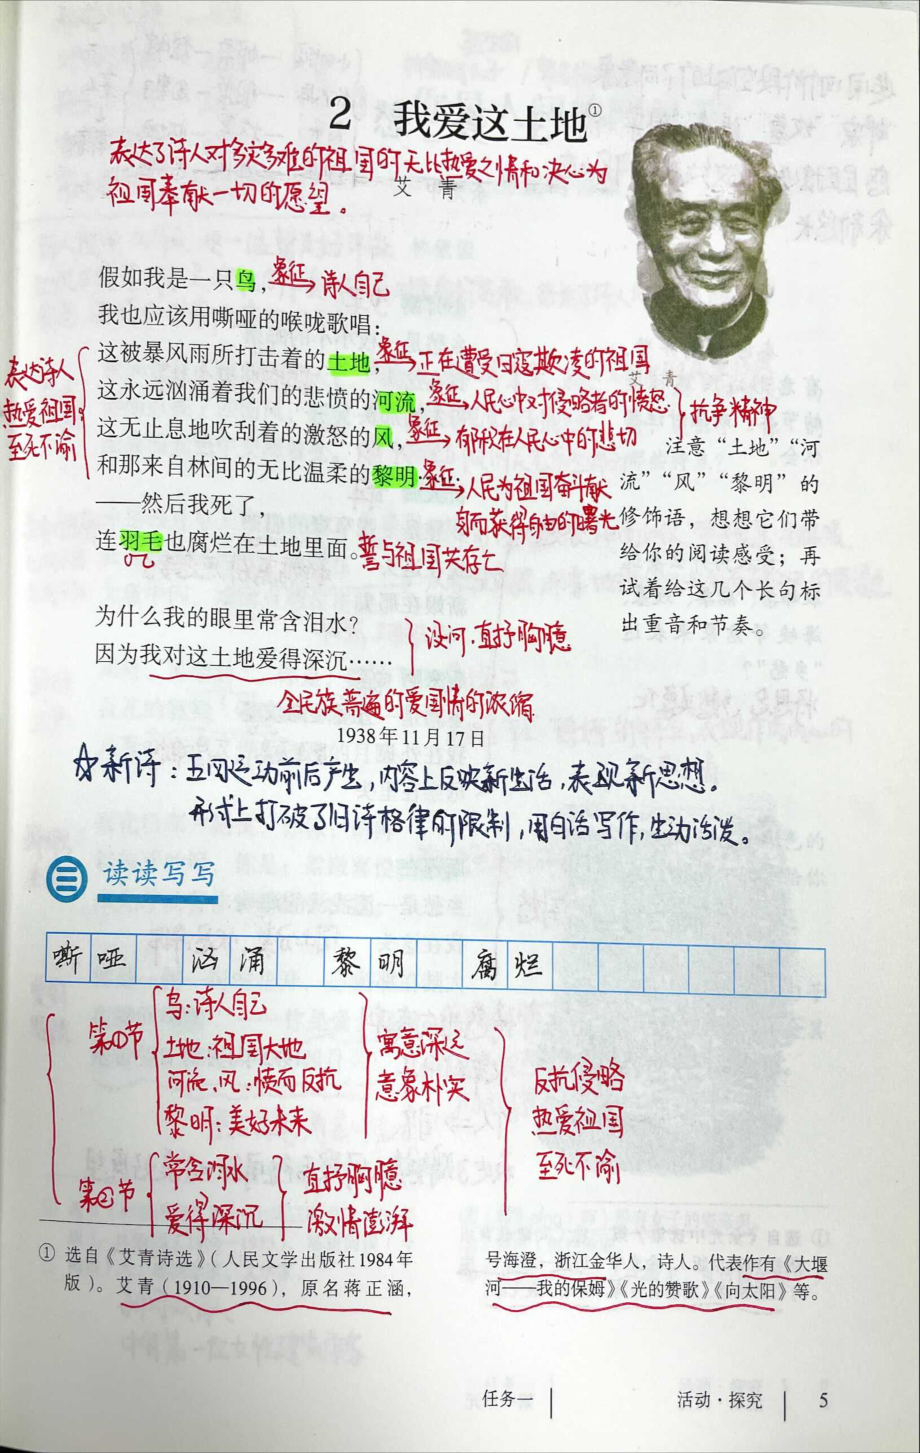 2 我爱这土地①
表达了诗人对多灾多难的祖国的无比热爱之情和决心为
祖国奉献一切的愿望。
艾 青
假如我是一只鸟，象征→诗人自己
我也应该用嘶哑的喉咙歌唱：
这被暴风雨所打击着的土地，象征→正在遭受日寇欺凌的祖国
艾 青
这永远汹涌着我们的悲愤的河流，象征→人民心中对侵略者的愤怒
抗争精神
这无止息地吹刮着的激怒的风，象征→郁积在人民心中的悲切
和那来自林间的无比温柔的黎明……象征→人民为祖国奋斗献
身而获得自由的曙光
表达诗人
热爱祖国
至死不渝
——然后我死了，
连羽毛也腐烂在土地里面。誓与祖国共存亡
为什么我的眼里常含泪水？
因为我对这土地爱得深沉……
设问·直抒胸臆
全民族普遍的爱国情的浓缩
1938年11月17日
注意“土地”“河
流”“风”“黎明”的
修饰语，想想它们带
给你的阅读感受；再
试着给这几个长句标
出重音和节奏。
☆新诗：五四运动前后产生，内容上反映新生活，表现新思想。
形式上打破了旧诗格律的限制，用白话写作，生动活泼。
读读写写
嘶哑 汹涌 黎明 腐烂
第①节
鸟：诗人自己
土地：祖国大地
河流、风：愤而反抗
黎明：美好未来
寓意深远
意象朴实
第②节
常含泪水
爱得深沉
直抒胸臆
激情澎湃
反抗侵略
热爱祖国
至死不渝
① 选自《艾青诗选》（人民文学出版社1984年
版）。艾青（1910—1996），原名蒋正涵，
号海澄，浙江金华人，诗人。代表作有《大堰
河——我的保姆》《光的赞歌》《向太阳》等。
任务一 活动·探究 5